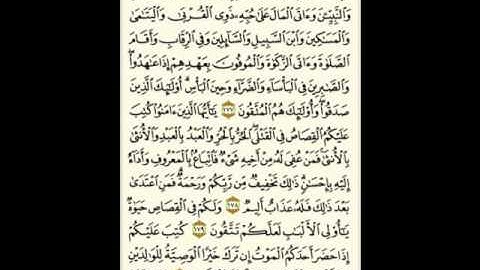 وَالنَّبِيِّـۧنَ وَءَاتَى الْمَالَ عَلَىٰ حُبِّهِۦ ذَوِى الْقُرْبَىٰ وَالْيَتَـٰمَىٰ
وَالْمَسَـٰكِينَ وَابْنَ السَّبِيلِ وَالسَّآئِلِينَ وَفِى الرِّقَابِ وَأَقَامَ
الصَّلَوٰةَ وَءَاتَى الزَّكَوٰةَ وَالْمُوفُونَ بِعَهْدِهِمْ إِذَا عَـٰهَدُوا۟ ۖ
وَالصَّـٰبِرِينَ فِى الْبَأْسَآءِ وَالضَّرَّآءِ وَحِينَ الْبَأْسِ ۗ أُو۟لَـٰٓئِكَ الَّذِينَ
صَدَقُوا۟ ۖ وَأُو۟لَـٰٓئِكَ هُمُ الْمُتَّقُونَ ١٧٧ يَـٰٓأَيُّهَا الَّذِينَ ءَامَنُوا۟ كُتِبَ
عَلَيْكُمُ الْقِصَاصُ فِى الْقَتْلَى ۖ الْحُرُّ بِالْحُرِّ وَالْعَبْدُ بِالْعَبْدِ وَالْأُنثَىٰ
بِالْأُنثَىٰ ۚ فَمَنْ عُفِىَ لَهُۥ مِنْ أَخِيهِ شَىْءٌ فَاتِّبَاعٌۢ بِالْمَعْرُوفِ وَأَدَآءٌ
إِلَيْهِ بِإِحْسَـٰنٍ ۗ ذَٰلِكَ تَخْفِيفٌ مِّن رَّبِّكُمْ وَرَحْمَةٌ ۗ فَمَنِ اعْتَدَىٰ
بَعْدَ ذَٰلِكَ فَلَهُۥ عَذَابٌ أَلِيمٌ ١٧٨ وَلَكُمْ فِى الْقِصَاصِ حَيَوٰةٌ
يَـٰٓأُو۟لِى الْأَلْبَـٰبِ لَعَلَّكُمْ تَتَّقُونَ ١٧٩ كُتِبَ عَلَيْكُمْ
إِذَا حَضَرَ أَحَدَكُمُ الْمَوْتُ إِن تَرَكَ خَيْرًا الْوَصِيَّةُ لِلْوَٰلِدَيْنِ